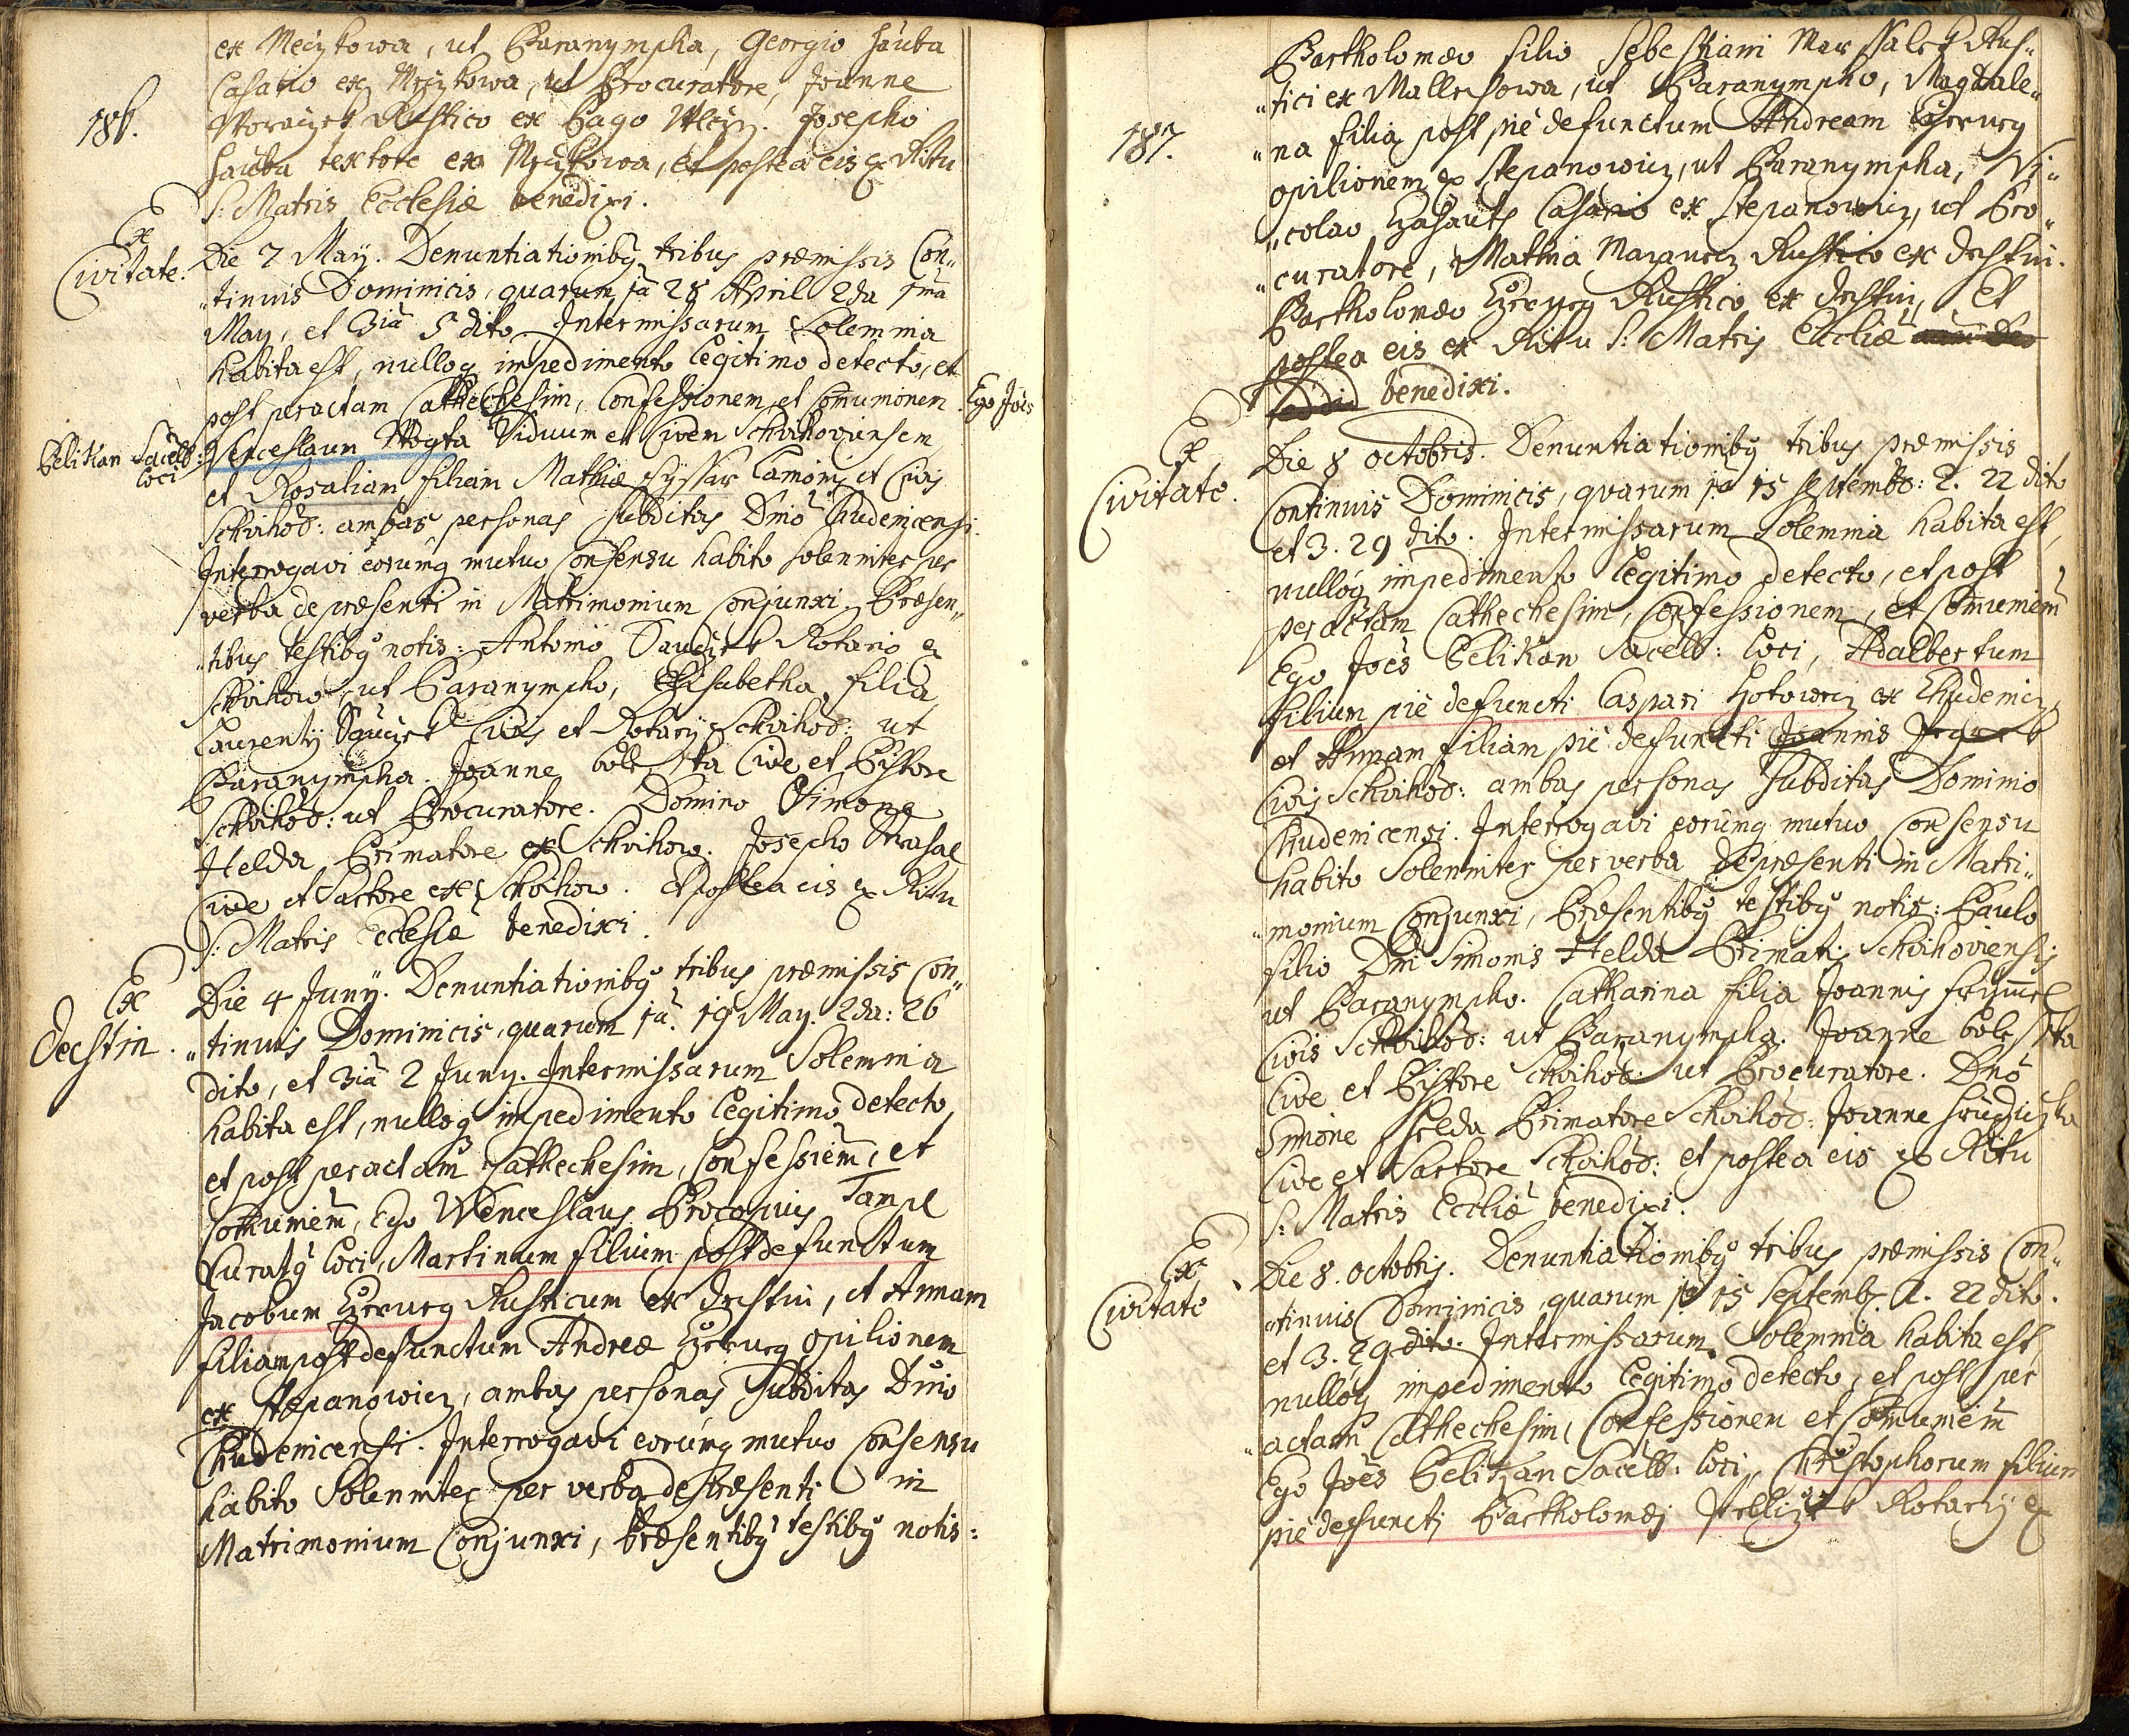 186.
ex Mecykowa, ut Paranympha, Georgio Hauba
Casario ex Mecykowa, ut Procuratore, Joanne
Woraczek Rustico ex Pago Wlczy. Josepho
Hauba textore ex Mecykowa, et postea eis ex Ritu
S: Matris Ecclesiæ benedixi.
Ex
Civitate.
Die 7 May. Denuntiationibꝰ tribus præmissis Con„
„tinuis Dominicis, quarum 1ã 28 April 2da 1mã
May, et 3iã 5 dito Intermissarum Solemnia
habita est, nulloq impedimento legitimo detecto, et
post peractam Cathechesim, Confessionem et Comunionem Ego Joes
Pelikan Sacell:
loci
Venceslaum Wogta Viduum et Civem Schvihoviensem
et Rosaliam filiam Mathiæ Lamonÿ et Civis
Schvihov: ambas personas subditas Dnio Chudenicensi.
Interrogavi eorumq mutuo Consensu habito solenniter per
verba de præsenti in Matrimonium Conjunxi, Præsen„
„tibus testibꝰ notis: Antonio Sauczek Rotario ex
Schvihow, ut Paranympho, Elisabetha filia
Laurentÿ Sauczek Civis et Rotarÿ Schvihov: ut
Paranympha. Joanne boleska Cive et Pistore
Schvihov: ut Procuratore. Domino Simone
Helda Primatore ex Schvihow. Josepho Krasal
Cive et Sartore ex Schvihow. Et postea eis ex Ritu
S: Matris Ecclesiæ benedixi.
Ex
Dechtin.
Die 4 Junÿ. Denuntiationibꝰ tribus præmissis Con„
„tinuis Dominicis, quarum 1ã. 19 May. 2da: 26
dito, et 3iã 2 Juny. Intermissarum Solemnia
habita est, nulloq impedimento legitimo detecto,
et post peractam Cathechesim, Confessiem̄, et
Comuniem̄, Ego Wenceslaus Procopius Tampl
Curatꝰ loci, Martinum filium post defunctum
Jacobum Hrrurg Rusticum ex Dechtin, et Annam
filiam post defunctum Andreæ Hrrurg Opilionem
ex Stepanowicz, ambas personas Subditas Dnio
Chudenicensi. Interrogavi eorumq mutuo Consensu
habito Solenniter per verba de Præsenti in
Matrimonium Conjunxi, Præsentibꝰ testibꝰ notis:
187.
Bartholomæo filio Sebestiani Marssalek Rus„
„tici ex Mallechowa, ut Paranympho, Magdale„
„na filia post pie defunctum Andream Hrrurg
opilionem ex Stepanowicz, ut Paranympha, Ni„
„colao Casario ex Stepanowicz, ut Pro„
„curatore, Mathia Mazanecz Rustico ex Dechtin.
Bartholomæo Hrrurg Rustico ex Dechtin, Et
postea eis ex Ritu S: Matris Eccliæ
benedixi.
Ex
Civitate.
Die 8 octobris. Denuntiationibꝰ tribus præmissis
Continuis Dominicis, quarum 1ã 15 septembr: 2. 22 dito
et 3. 29 dito. Intermissarum Solemnia habita est,
nulloq impedimento legitimo detecto, et post
peractam Cathechesim, Confessionem, et Comuniem̄
Ego Joes Pelikan Sacell: loci, Adalbertum
filium pie defuncti Caspari Hotowecz ex Chudenicz,
et Annam filiam pie defuncti Joannis
Civis Schvihov: ambas personas Subditas Dominio
Chudenicensi. Interrogavi eorumq mutuo Consensu
habito Solenniter per verba de præsenti in Matri„
„monium Conjunxi, Præsentibꝰ testibꝰ notis: Paulo
filio Dni Simonis Helda Primatis Schvihoviensis
ut Paranympho. Catharina filia Joannis
Civis Schvihov: ut Paranympha. Joanne boleska
Cive et Pistore Schvihov: ut Procuratore. Dno
Simone Helda Primatore Schvihov: Joanne
Cive et Sartore Schvihov: et postea eis ex Ritu
S: Matris Eccliæ benedixi.
Ex
Civitate
Die 8. octobris. Denuntiationibꝰ tribus præmissis Con„
„tinuis Dominicis quarum 1ã 15 Septemb. 2. 22 dito.
et 3. 29 dito. Intermissarum Solemnia habita est,
nulloq impedimento legitimo detecto, et post per
„actam Cathechesim, Confessionem et Comuniem̄
Ego Joes Pelikan Sacell: loci, Christophorum filium
pie defuncti Bartholomæj Rotarÿ ex